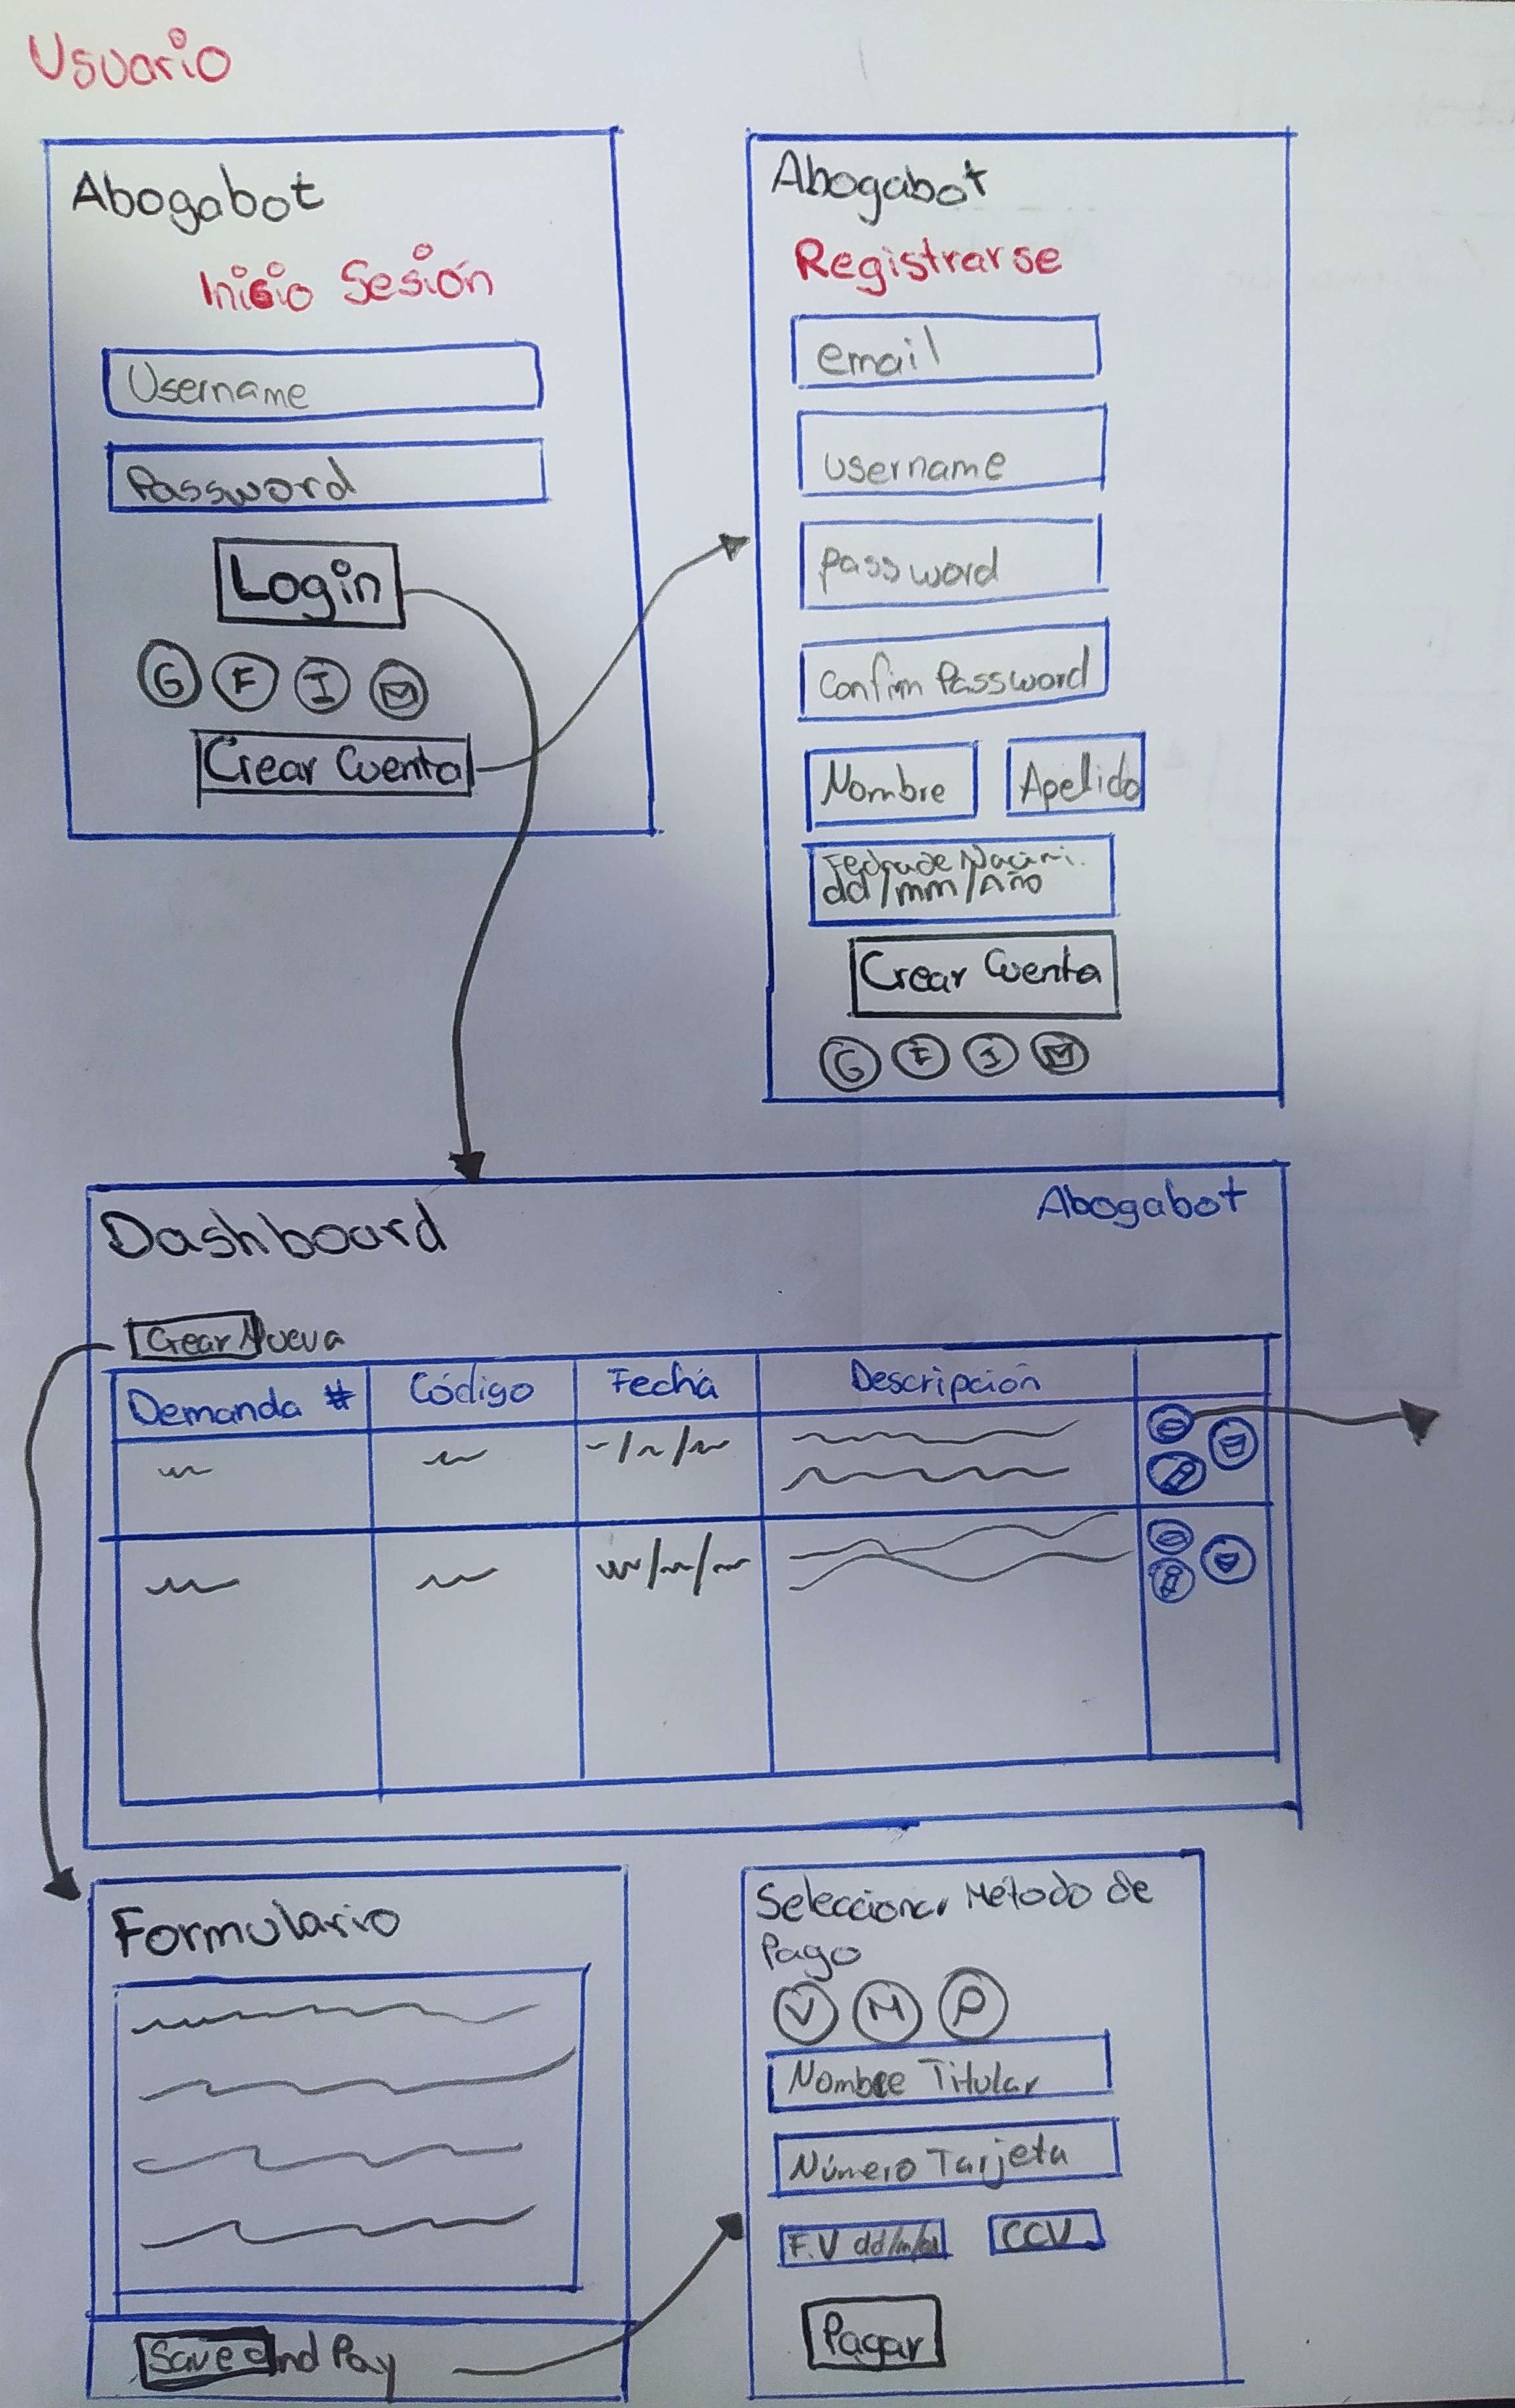 Usuario
Abogabot
Inicio Sesión
Username
Password
Login
G F I
Crear Cuenta
Abogabot
Registrarse
email
username
password
Confirm Password
Nombre Apellido
Fecha de Nacimi.
dd/mm/Año
Crear Cuenta
G F I
Dashboard Abogabot
Crear Nueva
Demanda # Código Fecha Descripción
Formulario
Save and Pay
Seleccionar Método de
Pago
V M P
Nombre Titular
Número Tarjeta
F.V dd/m/a CCV
Pagar